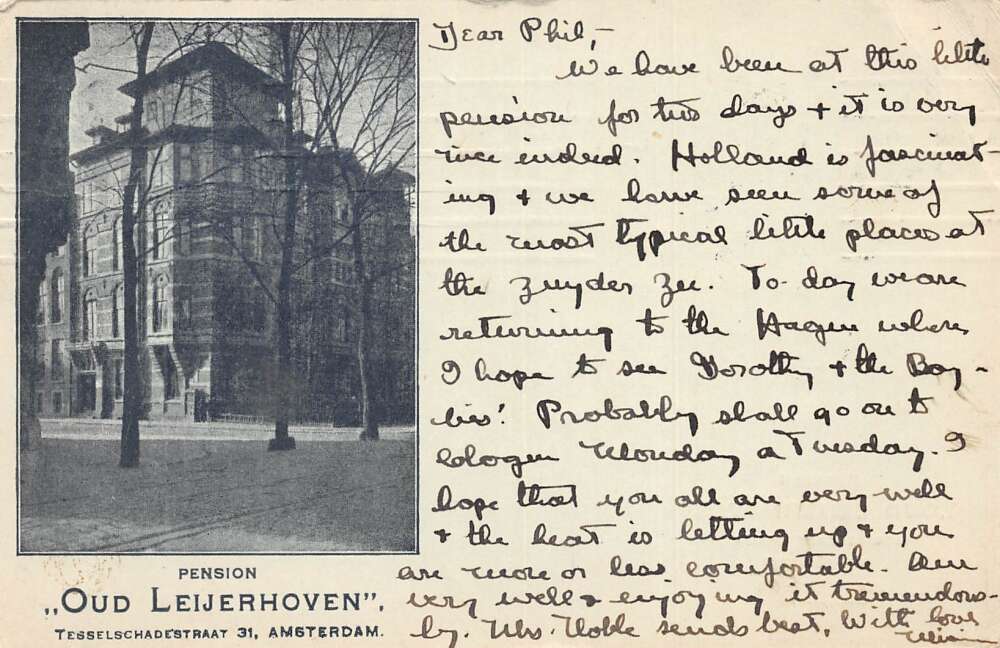 PENSION
„OUD LEIJERHOVEN",
TESSELSCHADESTRAAT 31, AMSTERDAM.
Dear Phil,-
We have been at this little
pension for two days + it is very
nice indeed. Holland is fascinat-
ing + we have seen some of
the most typical little places at
the Zuyder Zee. To-day we are
returning to the Hague where
I hope to see Dorothy + the
Probably shall go on to
Cologne Monday or Tuesday. I
hope that you all are very well
+ the heat is letting up + you
are more or less comfortable. Am
very well + enjoying it tremendous-
ly. Mrs. Noble sends best. With love